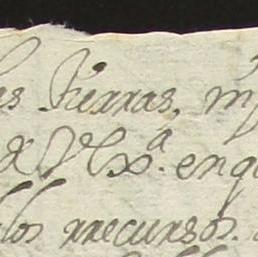 es tierras, m
VExª. enq
los rrecursos.